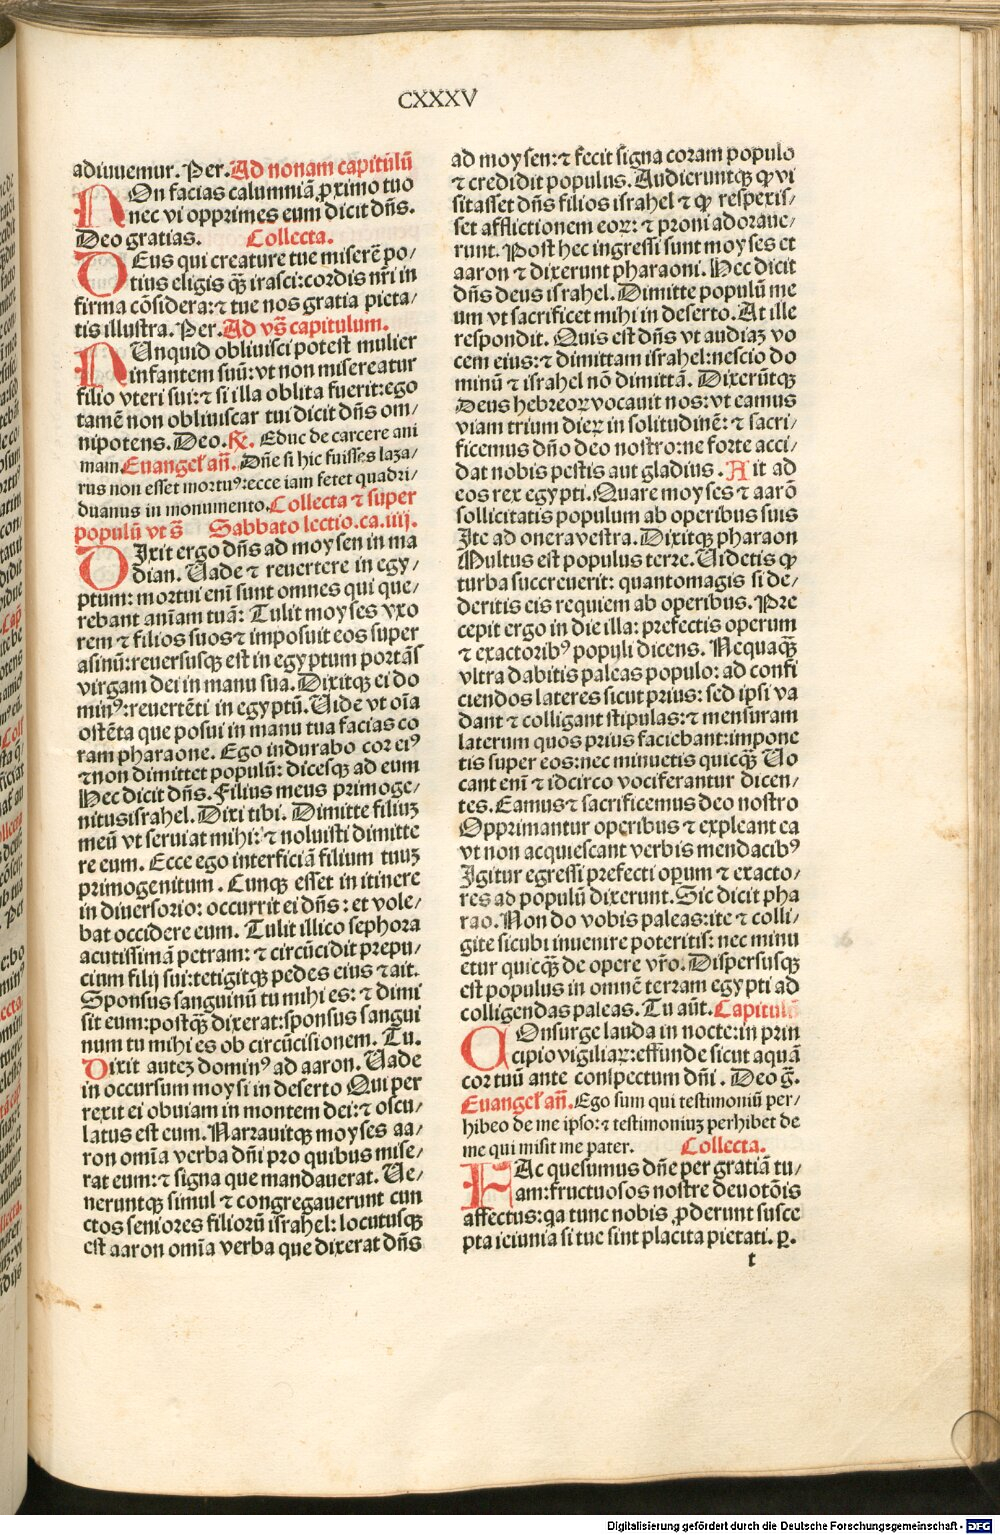 CXXXV
adiuuemur. Per. Ad nonam capitulū
NOn facias calumniā ꝓximo tuo
nec vi opprimes eum dicit dn̄s.
Deo gratias. Collecta.
DEus qui creature tue miserē po/
tius eligis qꝫ̄ irasci: cordis nr̄i in
firma cōsidera: ⁊ tue nos gratia pieta/
tis illustra. Per. Ad vs̄ capitulum.
NUnquid obliuisci potest mulier
infantem suū: vt non misereatur
filio vteri sui: ⁊ si illa oblita fuerit: ego
tamē non obliuiscar tui dicit dn̄s om/
nipotens. Deo. ℟. Educ de carcere ani
mam. Euangel̓ an̄. Dn̄e si hic fuisses laza/
rus non esset mortuꝰ: ecce iam fetet quadri/
duanus in monumento. Collecta ⁊ super
populū vt s̄ Sabbato lectio. ca. iiij.
DIxit ergo dn̄s ad moysen in ma
dian. Vade ⁊ reuertere in egy/
ptum: mortui enī sunt omnes qui que/
rebant anīam tuā: Tulit moyses vxo
rem ⁊ filios suos ⁊ imposuit eos super
asinū: reuersusqꝫ est in egyptum portās
virgam dei in manu sua. Dixitqꝫ ei do
minꝰ: reuertēti in egyptū. Vide vt oīa
ostēta que posui in manu tua facias co
ram pharaone. Ego indurabo cor eiꝰ
⁊ non dimittet populū: dicesqꝫ ad eum
Hec dicit dn̄s. Filius meus primoge/
nitus israhel. Dixi tibi. Dimitte filiuꝫ
meū vt seruiat mihi: ⁊ noluisti dimitte
re eum. Ecce ego interficiā filium tuuꝫ
primogenitum. Cunqꝫ esset in itinere
in diuersorio: occurrit ei dn̄s: et vole/
bat occidere eum. Tulit illico sephora
acutissimā petram: ⁊ circūcidit prepu/
cium filij sui: tetigitqꝫ pedes eius ⁊ ait.
Sponsus sanguinū tu mihi es: ⁊ dimi
sit eum: postqꝫ̄ dixerat: sponsus sangui
num tu mihi es ob circūcisionem. Tu.
Dixit auteꝫ dominꝰ ad aaron. Vade
in occursum moysi in deserto Qui per
rexit ei obuiam in montem dei: ⁊ oscu/
latus est eum. Narrauitqꝫ moyses aa/
ron omīa verba dn̄i pro quibus mise/
rat eum: ⁊ signa que mandauerat. Ue/
neruntqꝫ simul ⁊ congregauerunt cun
ctos seniores filiorū israhel: locutusqꝫ
est aaron omīa verba que dixerat dn̄s
ad moysen: ⁊ fecit signa coram populo
⁊ credidit populus. Audieruntqꝫ ꝙ vi
sitasset dn̄s filios israhel ⁊ ꝙ respexis/
set afflictionem eoꝝ: ⁊ proni adoraue/
runt. Post hec ingressi sunt moyses et
aaron ⁊ dixerunt pharaoni. Hec dicit
dn̄s deus israhel. Dimitte populū me
um vt sacrificet mihi in deserto. At ille
respondit. Quis est dn̄s vt audiaꝫ vo
cem eius: ⁊ dimittam israhel: nescio do
minū ⁊ israhel nō dimittā. Dixerūtqꝫ
Deus hebreoꝝ vocauit nos: vt eamus
viam trium dieꝝ in solitudinē: ⁊ sacri/
ficemus dn̄o deo nostro: ne forte acci/
dat nobis pestis aut gladius. Ait ad
eos rex egypti. Quare moyses ⁊ aarō
sollicitatis populum ab operibus suis
Ite ad onera vestra. Dixitqꝫ pharaon
Multus est populus terre. Videtis ꝙ
turba succreuerit: quantomagis si de/
deritis eis requiem ab operibus. Pre
cepit ergo in die illa: prefectis operum
⁊ exactoribꝰ populi dicens. Nequaqꝫ̄
vltra dabitis paleas populo: ad confi
ciendos lateres sicut prius: sed ipsi va
dant ⁊ colligant stipulas: ⁊ mensuram
laterum quos prius faciebant: impone
tis super eos: nec minuetis quicqꝫ̄ Uo
cant enī ⁊ idcirco vociferantur dicen/
tes. Eamus ⁊ sacrificemus deo nostro
Opprimantur operibus ⁊ expleant ea
vt non acquiescant verbis mendacibꝰ
Igitur egressi prefecti opum ⁊ exacto/
res ad populū dixerunt. Sic dicit pha
rao. Non do vobis paleas: ite ⁊ colli/
gite sicubi inuenire poteritis: nec minu
etur quicqꝫ̄ de opere vr̄o. Dispersusqꝫ
est populus in omnē terram egypti ad
colligendas paleas. Tu aūt. Capitulū
COnsurge lauda in nocte: in prin
cipio vigiliaꝝ: effunde sicut aquā
cor tuū ante conspectum dn̄i. Deo g̃.
Euangel̓ an̄. Ego sum qui testimoniū per/
hibeo de me ipso: ⁊ testimoniuꝫ perhibet de
me qui misit me pater. Collecta.
FAc quesumus dn̄e per gratiā tu/
am: fructuosos nostre deuotōis
affectus: qa tunc nobis ꝓderunt susce
pta ieiunia si tue sint placita pietati. ꝑ.
t
Digitalisierung gefördert durch die Deutsche Forschungsgemeinschaft - DFG